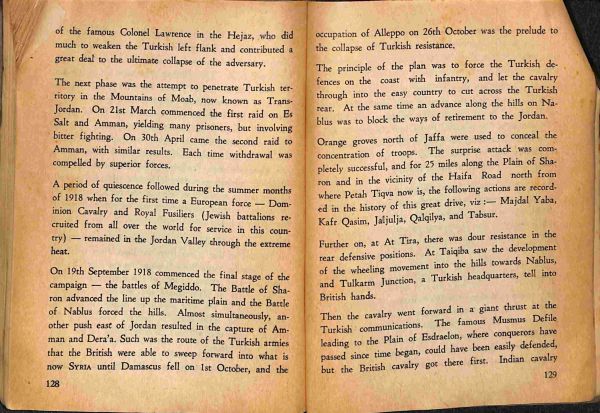 of the famous Colonel Lawrence in the Hejaz, who did
much to weaken the Turkish left flank and contributed a
great deal to the ultimate collapse of the adversary.
The next phase was the attempt to penetrate Turkish ter-
ritory in the Mountains of Moab, now known as Trans-
Jordan. On 21st March commenced the first raid on Es
Salt and Amman, yielding many prisoners, but involving
bitter fighting. On 30th April came the second raid to
Amman, with similar results. Each time withdrawal was
compelled by superior forces.
A period of quiescence followed during the summer months
of 1918 when for the first time a European force — Dom-
inion Cavalry and Royal Fusiliers (Jewish battalions re-
cruited from all over the world for service in this coun-
try) — remained in the Jordan Valley through the extreme
heat.
On 19th September 1918 commenced the final stage of the
campaign — the battles of Megiddo. The Battle of Sha-
ron advanced the line up the maritime plain and the Battle
of Nablus forced the hills. Almost simultaneously, an-
other push east of Jordan resulted in the capture of Am-
man and Dera'a. Such was the route of the Turkish armies
that the British were able to sweep forward into what is
now SYRIA until Damascus fell on 1st October, and the
128
occupation of Alleppo on 26th October was the prelude to
the collapse of Turkish resistance.
The principle of the plan was to force the Turkish de-
fences on the coast with infantry, and let the cavalry
through into the easy country to cut across the Turkish
rear. At the same time an advance along the hills on Na-
blus was to block the ways of retirement to the Jordan.
Orange groves north of Jaffa were used to conceal the
concentration of troops. The surprise attack was com-
pletely successful, and for 25 miles along the Plain of Sha-
ron and in the vicinity of the Haifa Road north from
where Petah Tiqva now is, the following actions are record-
ed in the history of this great drive, viz :— Majdal Yaba,
Kafr Qasim, Jaljulja, Qalqilya, and Tabsur.
Further on, at At Tira, there was dour resistance in the
rear defensive positions. At Taiqiba saw the development
of the wheeling movement into the hills towards Nablus,
and Tulkarm Junction, a Turkish headquarters, tell into
British hands.
Then the cavalry went forward in a giant thrust at the
Turkish communications. The famous Musmus Defile
leading to the Plain of Esdraelon, where conquerors have
passed since time began, could have been easily defended,
but the British cavalry got there first. Indian cavalry
129